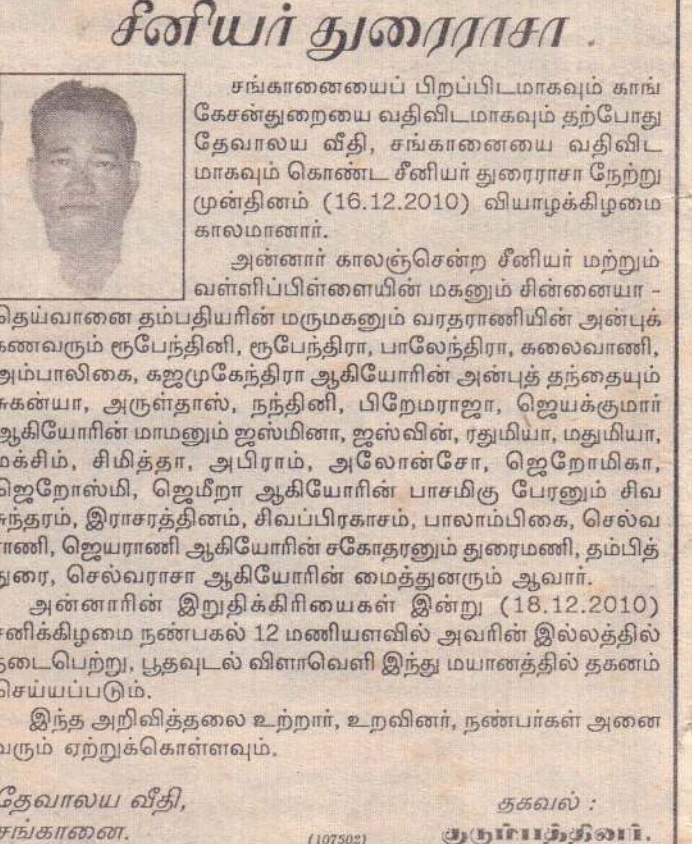 சீனியர் துரைராசா
சங்கானையைப் பிறப்பிடமாகவும் காங்
கேசன்துறையை வதிவிடமாகவும் தற்போது
தேவாலய வீதி, சங்கானையை வதிவிட
மாகவும் கொண்ட சீனியர் துரைராசா நேற்று
முன்தினம் (16.12.2010) வியாழக்கிழமை
காலமானார்.
அன்னார் காலஞ்சென்ற சீனியர் மற்றும்
வள்ளிப்பிள்ளையின் மகனும் சின்னையா -
தெய்வானை தம்பதியரின் மருமகனும் வரதராணியின் அன்புக்
கணவரும் ரூபேந்தினி, ரூபேந்திரா, பாலேந்திரா, கலைவாணி,
அம்பாலிகை, கஜமுகேந்திரா ஆகியோரின் அன்புத் தந்தையும்
சுகன்யா, அருள்தாஸ், நந்தினி, பிறேமராஜா, ஜெயக்குமார்
ஆகியோரின் மாமனும் ஜஸ்மினா, ஜஸ்வின், ரதுமியா, மதுமியா,
மக்சிம், சிமித்தா, அபிராம், அலோன்சோ, ஜெறோமிகா,
ஜெறோஸ்மி, ஜெமீறா ஆகியோரின் பாசமிகு பேரனும் சிவ
சுந்தரம், இராசரத்தினம், சிவப்பிரகாசம், பாலாம்பிகை, செல்வ
ராணி, ஜெயராணி ஆகியோரின் சகோதரனும் துரைமணி, தம்பித்
துரை, செல்வராசா ஆகியோரின் மைத்துனரும் ஆவார்.
அன்னாரின் இறுதிக்கிரியைகள் இன்று (18.12.2010)
சனிக்கிழமை நண்பகல் 12 மணியளவில் அவரின் இல்லத்தில்
நடைபெற்று, பூதவுடல் விளாவெளி இந்து மயானத்தில் தகனம்
செய்யப்படும்.
இந்த அறிவித்தலை உற்றார், உறவினர், நண்பர்கள் அனை
வரும் ஏற்றுக்கொள்ளவும்.
தேவாலய வீதி,
சங்கானை.
தகவல் :
(107502)
குடும்பத்தினர்.